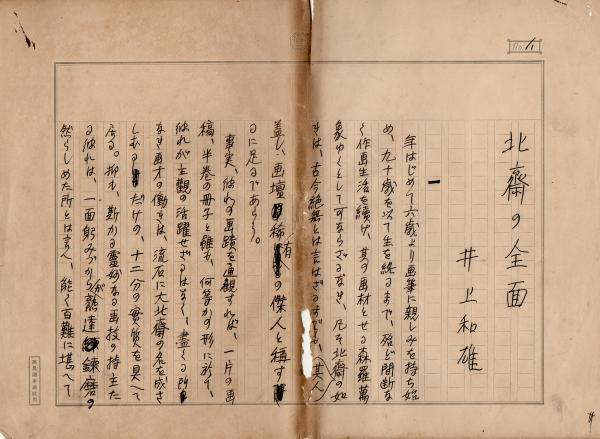 No. 1
北齋の全面
井上和雄
一
年はじめて六歳より画筆に親しみを持ち始
め、九十歳を以て生を終るまで、殆ど間断な
く作画生活を續け、其の画材とせる森羅萬
象ゆくとして可ならざるなき、凡そ北齋の如
きは、古今絶無とは言はざるまでも、(其人)
蓋し、画壇稀有の傑人と稱す
るに足るであらう。
事実、彼れの画蹟を通観すれば、一片の画
稿、半巻の冊子と雖も、何等かの形に於て、
彼れが主觀の活躍せざるはなく、盡くる所
なき画才の働きは、流石に大北齋の名を成さ
しむるだけの、十二分の實質を具へて
居る。抑も、斯かる靈妙なる画技の持主た
る彼れは、一面躬みづからが熟達錬磨の
然らしめた所とは言へ、能く百難に堪へて